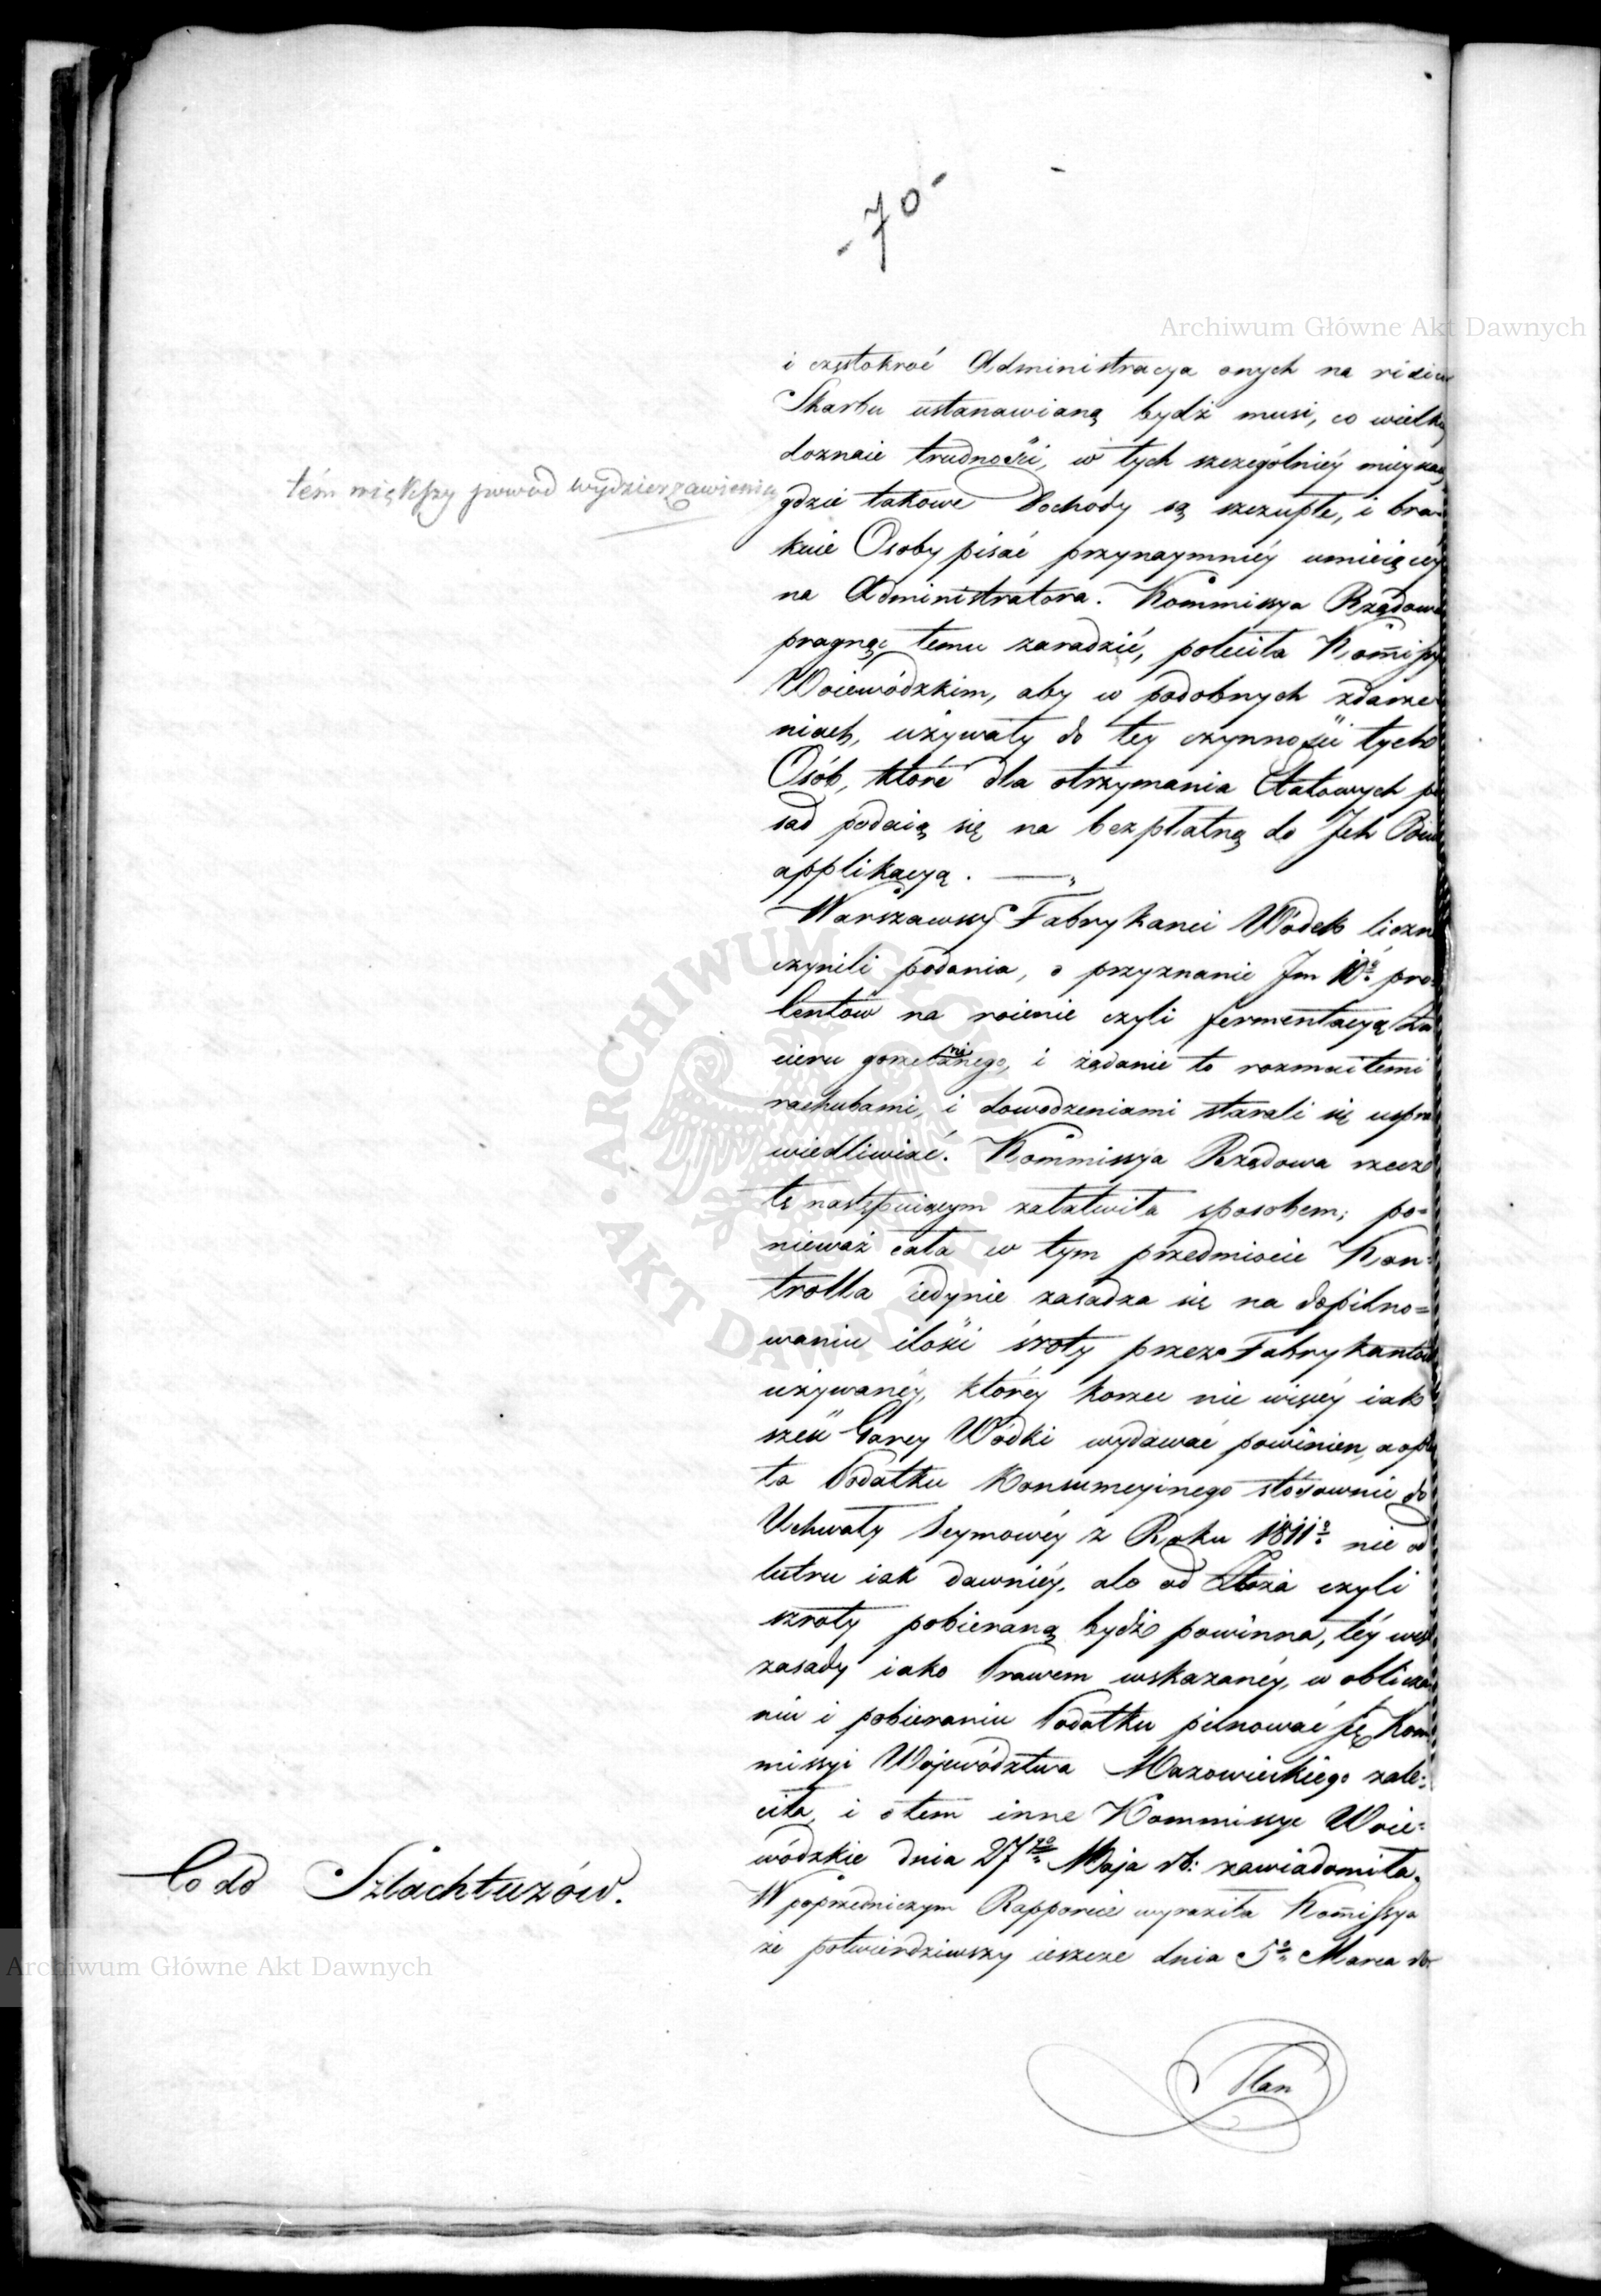 70
Archiwum Główne Akt Dawnych
i częstokroć Administracya onych na
Skarbu ustanawianą bydź musi, co wielką
doznaie trudności, w tych szczególniéy mieysca
tém większy powód wydzierżawienia
gdzie takowe Dochody są szczupłe, i bra-
knie Osoby pisać przynaymniéy umieiącéy
na Administratora. Kommissya Rządowa
pragnąc temu zaradzić, poleciła Kom̄issy
Woiewódzkim, aby w podobnych zdarze
niach, używały do tey czynności tych
Osób, które dla otrzymania Etatowych po
sad podaią się na bezpłatną do Jch Biur
applikacyą. —„
Warszawscy Fabrykanci Wódek liczne
czynili podania, o przyznanie Jm 10º pro-
Centów na roienie czyli fermentacyą Za
cieru gorzelnianego, i żądanie to rozmaitemi
rachubami, i dowodzeniami starali się uspra
wiedliwiać. Kommissya Rządowa rzecz
tę następuiącym załatwiła sposobem; po=
nieważ cała w tym przedmiocie Kon=
trolla iedynie zasadza się na dopilno=
waniu ilości śroty przez Fabrykantów
używanéy, któréy korzec nie więcéy iak
sześć Garcy Wódki wydawać powinien, a opła
ta Podatku Konsumcyinego stósownie do
Uchwały Seymowéy z Roku 1811º nie od
lutru iak dawniéy, ale od Zboża czyli
szroty pobieraną bydź powinna, téy więc
zasady iako Prawem wskazanéy, w oblicza
niu i pobieraniu Podatku pilnować się Kom
missyi Województwa Mazowieckiego zale=
ciła, i o tem inne Kommissye Woie=
wódzkie dnia 27go Maja rb: zawiadomiła.
Co do Szlachtuzów.
W poprzedniczym Rapporcie wyraziła Kom̄issya
że potwierdziwszy ieszcze dnia 5º Marca rb.
Archiwum Główne Akt Dawnych
Plan
ARCHIWUM GŁÓWNE AKT DAWNYCH